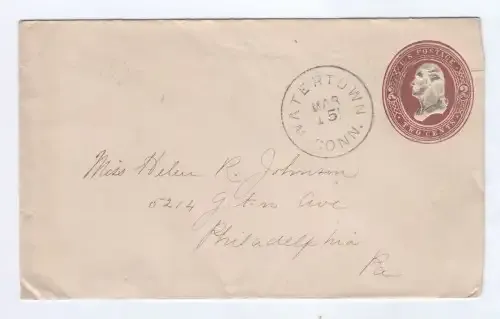 U.S. POSTAGE
TWO CENTS
WATERTOWN
MAR
15
CONN.
Miss Helen R. Johnson
5214 Ave
Philadelphia
Pa